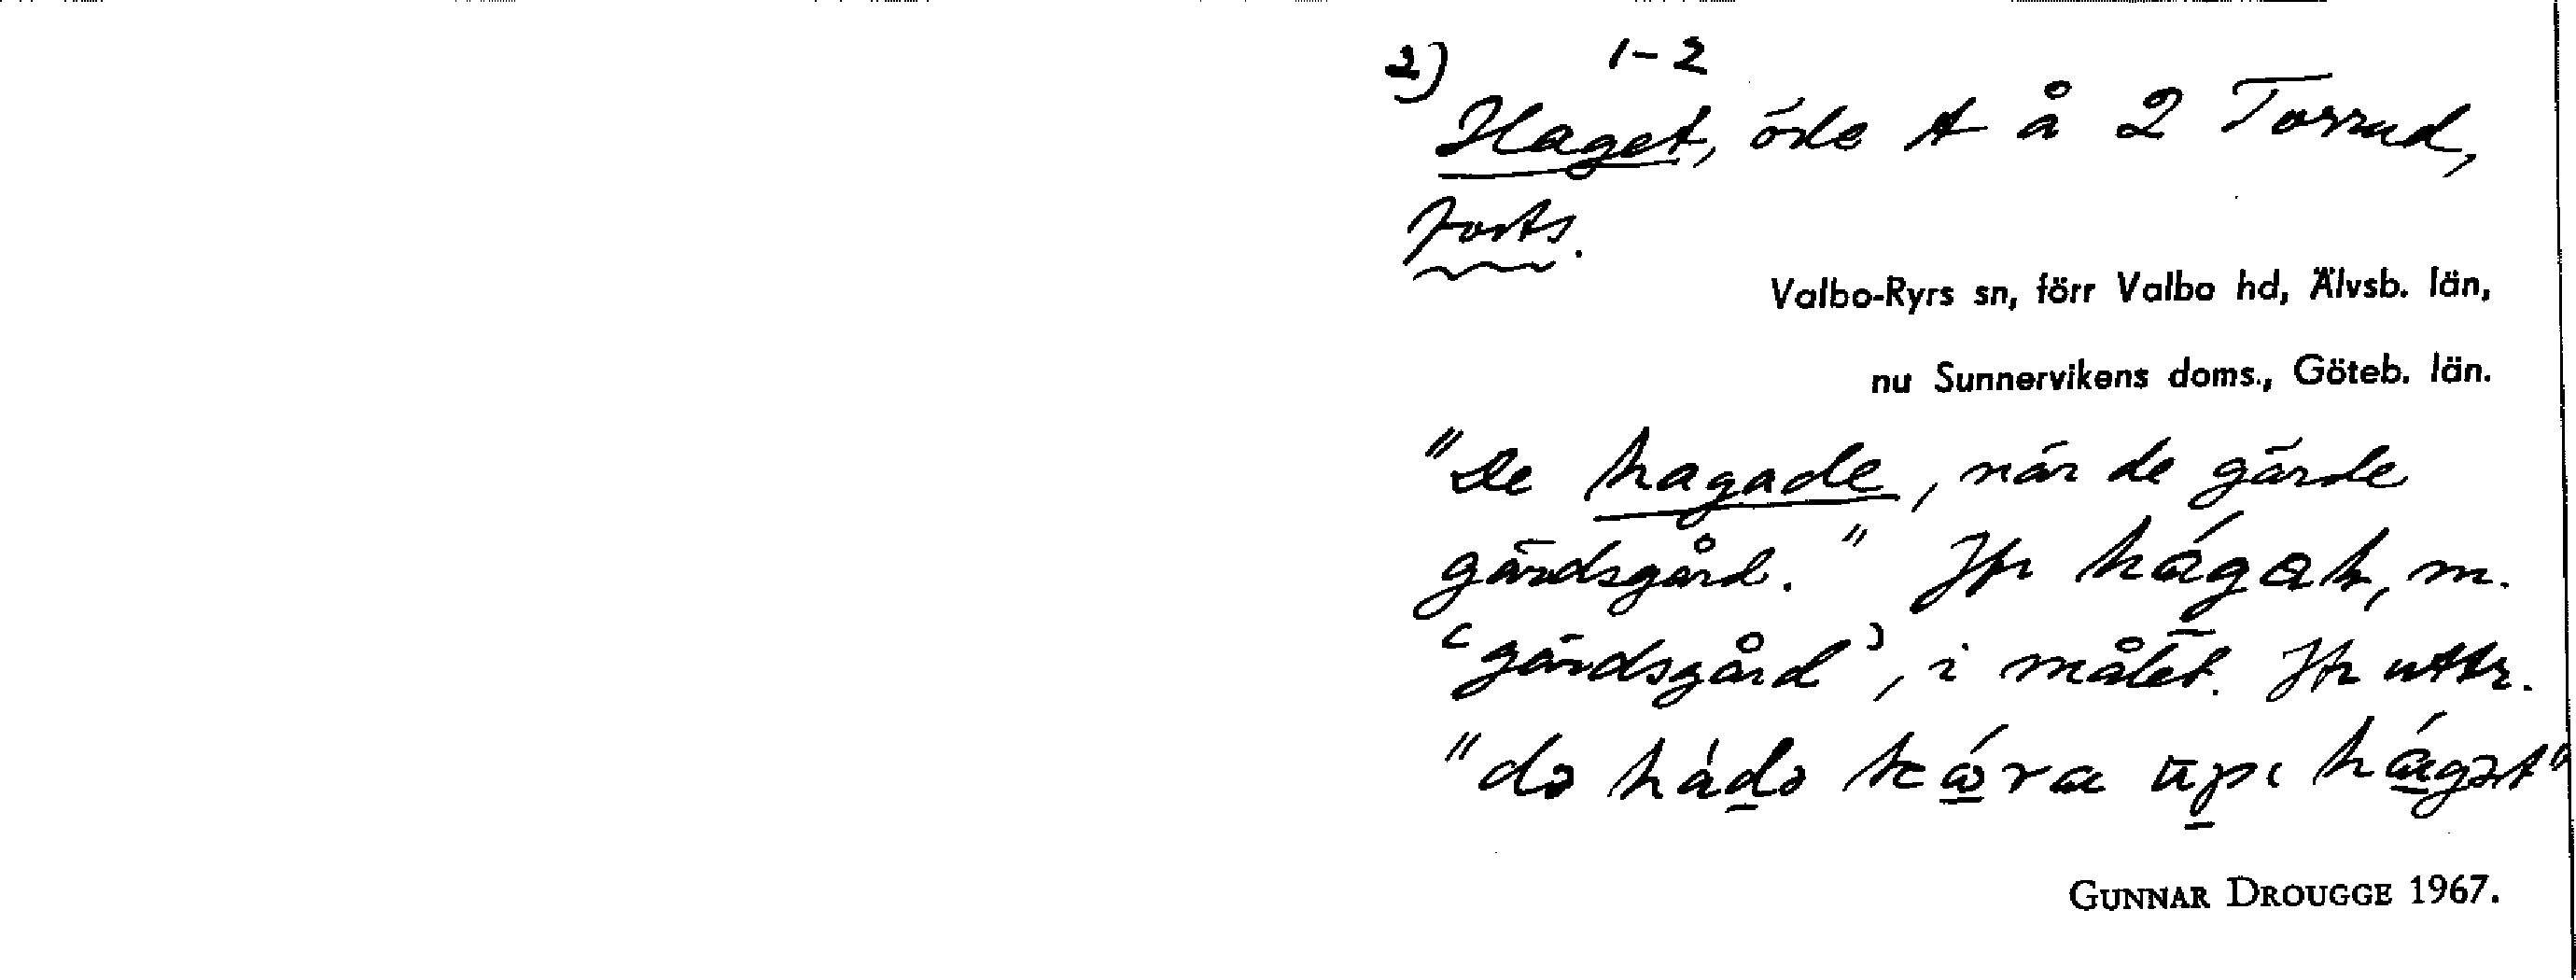 2) 1-2
Haget, öde t å 2 Torrud,
forts.
Valbo-Ryrs sn, förr Valbo hd, Älvsb. län,
nu Sunnervikens doms., Göteb. län.
"De hagade, när de gärde
gärdsgård." Jfr hágak, m.
‘gärdsgård’, i målet. Jfr uttr.
"də hàdə kɷ́ra upi hágət"
GUNNAR DROUGGE 1967.